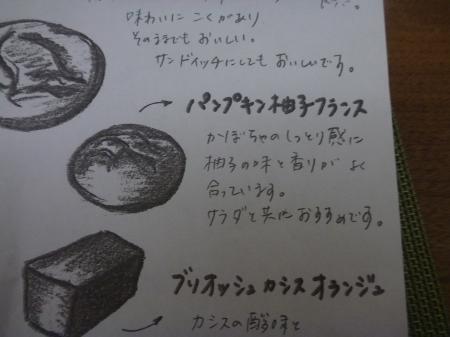 味わいに こくがあり
そのままでもおいしい。
サンドイッチにしても おいしいです。
パンプキン柚子フランス
かぼちゃのしっとり感に
柚子の味と香りが よく
合っています。
サラダと共に おすすめです。
ブリオッシュ カシス オランジュ
カシスの酸味と